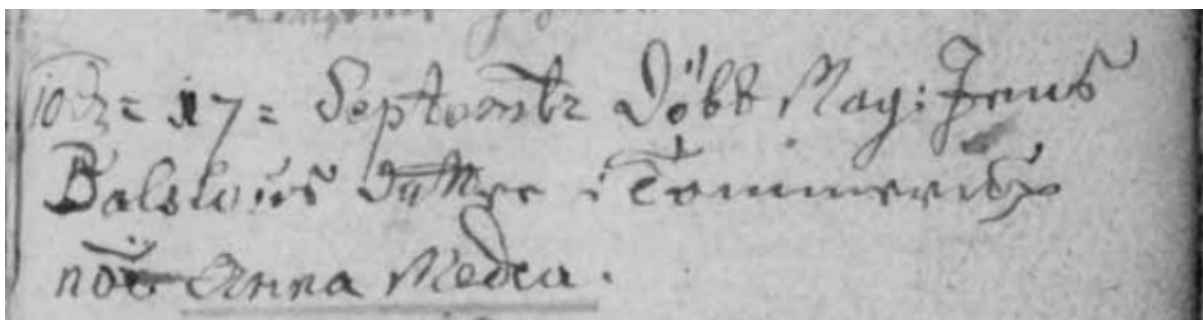 = 17 = Septembr Döbt Mag: Jens
Balslous Datter i Tommerup
nõe Anna Medea.